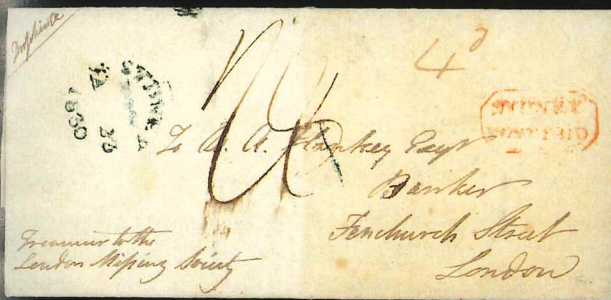 Duplicate
4d
SYDNEY
JA
28
1830
SYDNEY
POST PAID
To W. A. Hankey Esqr
Banker
Fenchurch Street
London
Treasurer to the
London Missiony Society